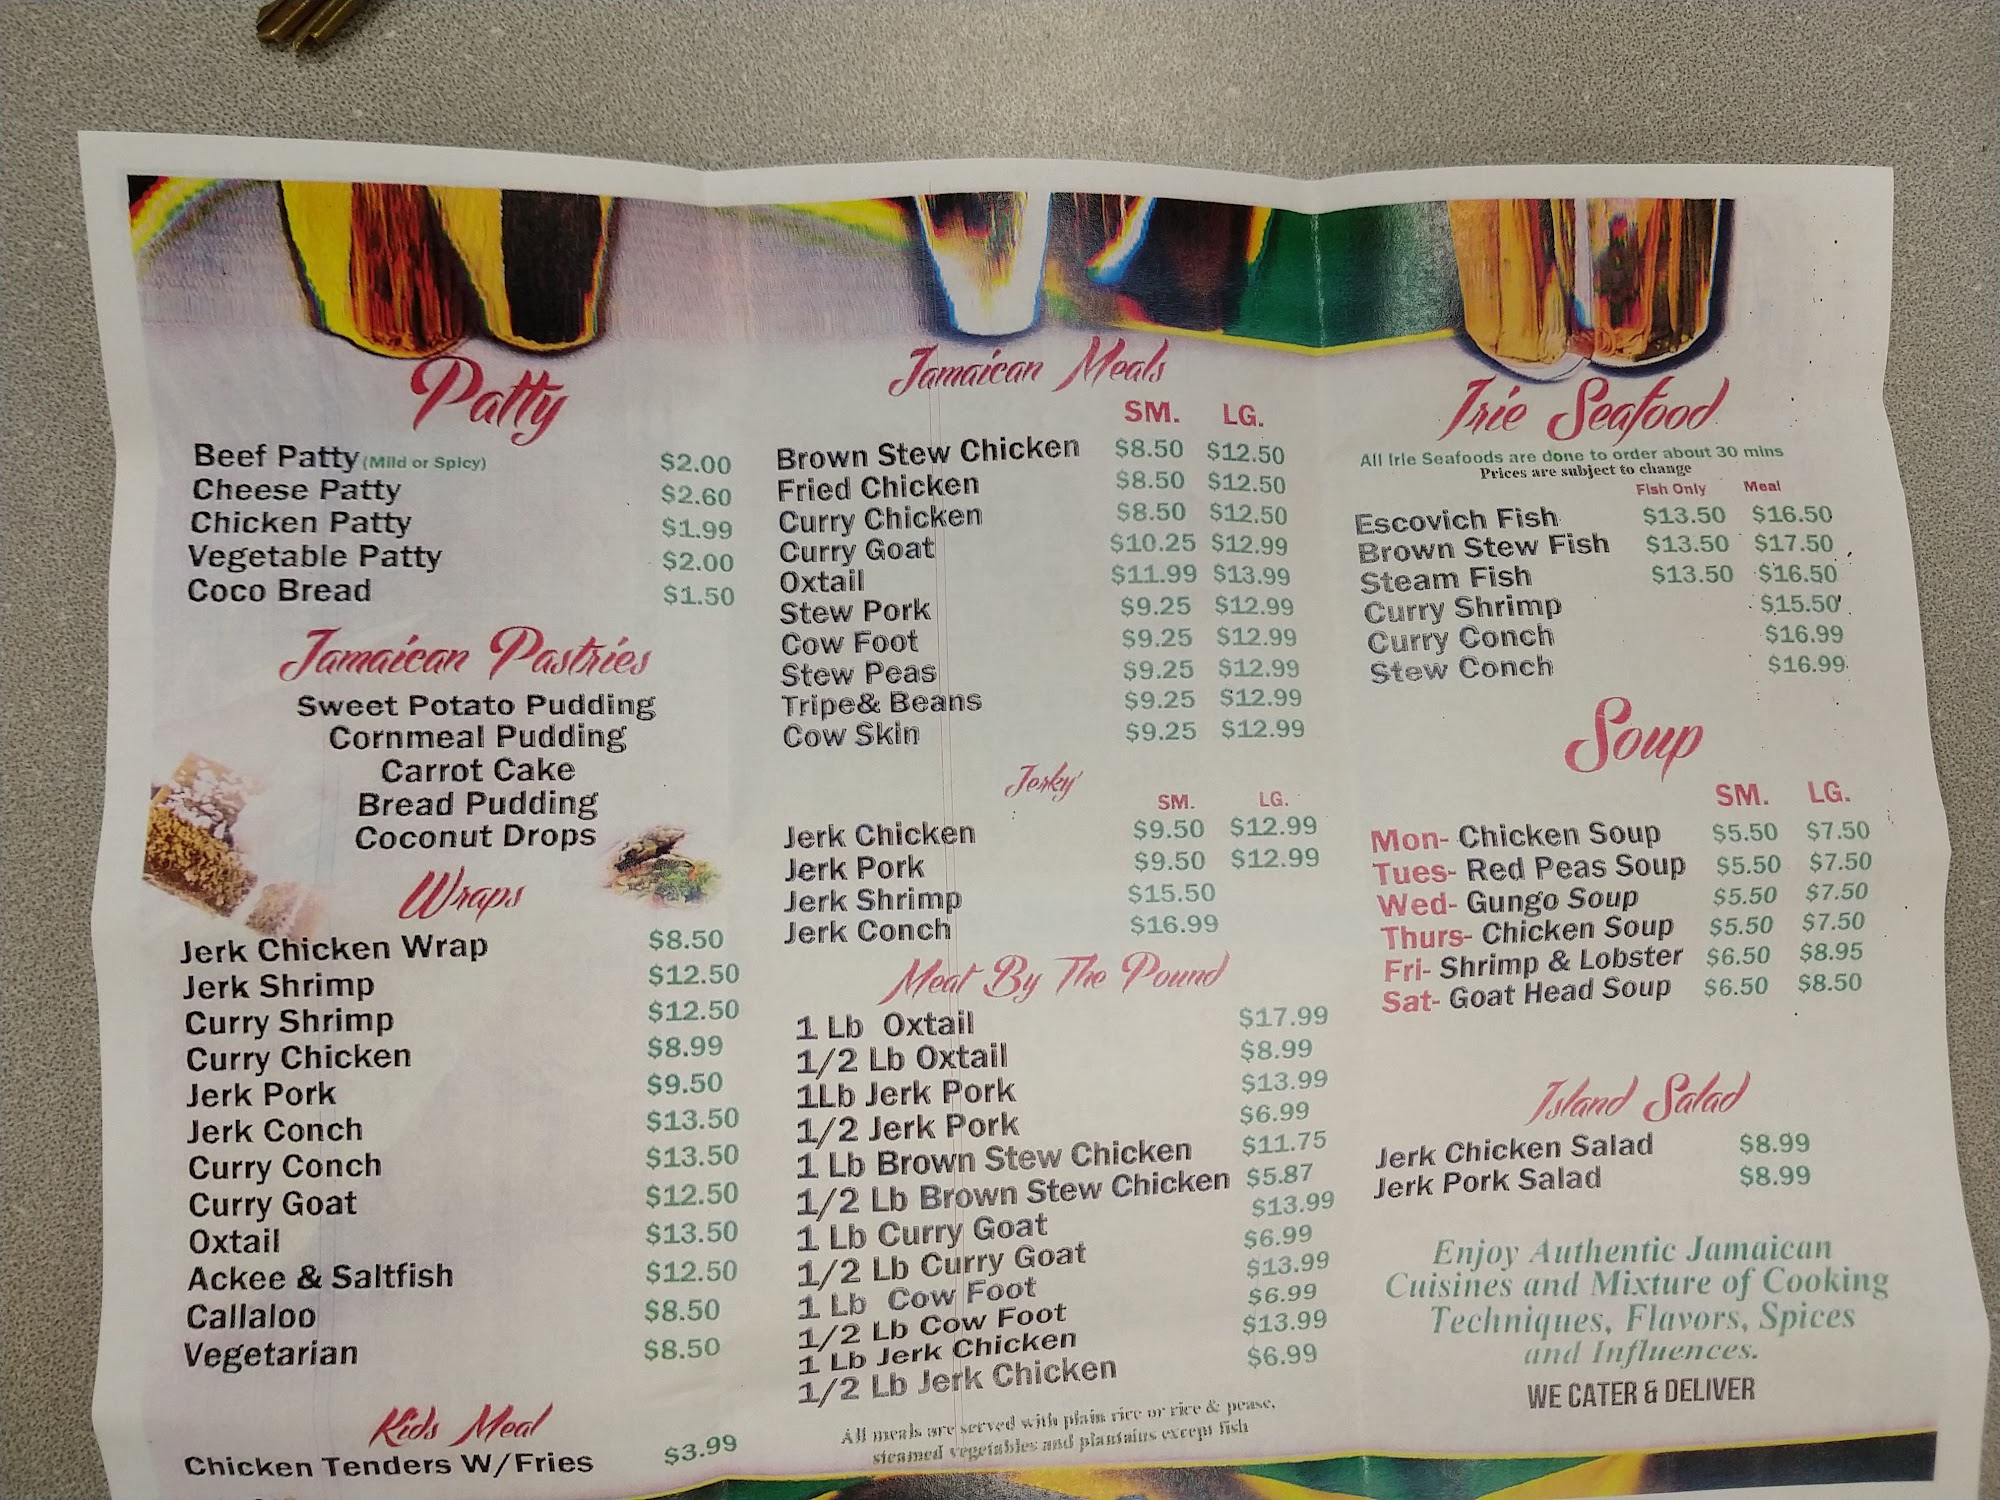 Patty
Beef Patty (Mild or Spicy) $2.00
Cheese Patty $2.60
Chicken Patty $1.99
Vegetable Patty $2.00
Coco Bread $1.50
Jamaican Pastries
Sweet Potato Pudding
Cornmeal Pudding
Carrot Cake
Bread Pudding
Coconut Drops
Wraps
Jerk Chicken Wrap $8.50
Jerk Shrimp $12.50
Curry Shrimp $12.50
Curry Chicken $8.99
Jerk Pork $9.50
Jerk Conch $13.50
Curry Conch $13.50
Curry Goat $12.50
Oxtail $13.50
Ackee & Saltfish $12.50
Callaloo $8.50
Vegetarian $8.50
Kids Meal
Chicken Tenders W/Fries $3.99
Jamaican Meals
SM. LG.
Brown Stew Chicken $8.50 $12.50
Fried Chicken $8.50 $12.50
Curry Chicken $8.50 $12.50
Curry Goat $10.25 $12.99
Oxtail $11.99 $13.99
Stew Pork $9.25 $12.99
Cow Foot $9.25 $12.99
Stew Peas $9.25 $12.99
Tripe& Beans $9.25 $12.99
Cow Skin $9.25 $12.99
Jerky'
SM. LG.
Jerk Chicken $9.50 $12.99
Jerk Pork $9.50 $12.99
Jerk Shrimp $15.50
Jerk Conch $16.99
Meat By The Pound
1 Lb Oxtail $17.99
1/2 Lb Oxtail $8.99
1Lb Jerk Pork $13.99
1/2 Jerk Pork $6.99
1 Lb Brown Stew Chicken $11.75
1/2 Lb Brown Stew Chicken $5.87
1 Lb Curry Goat $13.99
1/2 Lb Curry Goat $6.99
1 Lb Cow Foot $13.99
1/2 Lb Cow Foot $6.99
1 Lb Jerk Chicken $13.99
1/2 Lb Jerk Chicken $6.99
All meals are served with plain rice or rice & pease,
steamed vegetables and plantains except fish
Irie Seafood
All Irie Seafoods are done to order about 30 mins
Prices are subject to change
Fish Only Meal
Escovich Fish $13.50 $16.50
Brown Stew Fish $13.50 $17.50
Steam Fish $13.50 $16.50
Curry Shrimp $15.50
Curry Conch $16.99
Stew Conch $16.99
Soup
SM. LG.
Mon- Chicken Soup $5.50 $7.50
Tues- Red Peas Soup $5.50 $7.50
Wed- Gungo Soup $5.50 $7.50
Thurs- Chicken Soup $5.50 $7.50
Fri- Shrimp & Lobster $6.50 $8.95
Sat- Goat Head Soup $6.50 $8.50
Island Salad
Jerk Chicken Salad $8.99
Jerk Pork Salad $8.99
Enjoy Authentic Jamaican
Cuisines and Mixture of Cooking
Techniques, Flavors, Spices
and Influences.
WE CATER & DELIVER